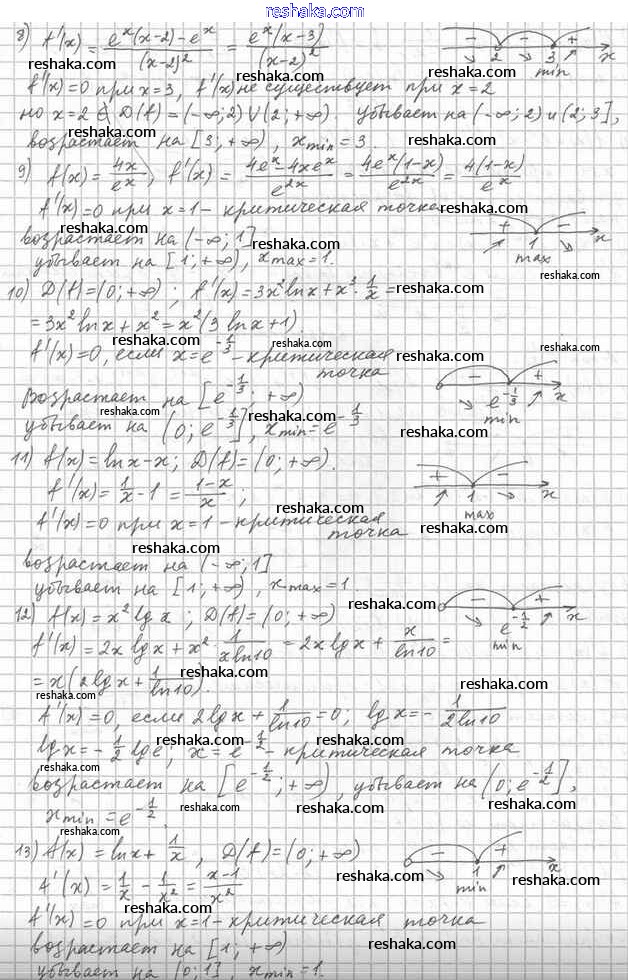 reshaka.com
8) f'(x) = (e^x(x-2) - e^x)/(x-2)^2 = e^x(x-3)/(x-2)^2
- 2 - 3 + x
min
f'(x)=0 при x=3, f'(x) не существует при x=2
но x=2 ∉ D(f)=(-∞;2)∪(2;+∞). убывает на (-∞;2) и (2;3],
возрастает на [3;+∞), x min = 3.
9) f(x) = 4x/e^x, f'(x) = (4e^x - 4xe^x)/e^(2x) = 4e^x(1-x)/e^(2x) = 4(1-x)/e^x
f'(x)=0 при x=1 - критическая точка
возрастает на (-∞;1]
убывает на [1;+∞), x max = 1.
+ 1 - x
max
10) D(f)=(0;+∞); f'(x)=3x^2 ln x + x^3 · 1/x =
= 3x^2 ln x + x^2 = x^2(3 ln x + 1)
f'(x)=0, если x=e^(-1/3) - критическая
точка
Возрастает на [e^(-1/3); +∞)
убывает на (0; e^(-1/3)], x min = e^(-1/3)
- e^(-1/3) + x
min
11) f(x) = ln x - x; D(f)=(0;+∞).
f'(x) = 1/x - 1 = (1-x)/x;
f'(x)=0 при x=1 - критическая
точка
+ 1 - x
max
возрастает на (-∞;1]
убывает на [1;+∞), x max = 1
12) f(x) = x^2 lg x; D(f)=(0;+∞)
- e^(-1/2) + x
min
f'(x) = 2x lg x + x^2 · 1/(x ln 10) = 2x lg x + x/ln 10 =
= x(2 lg x + 1/ln 10).
f'(x)=0, если 2 lg x + 1/ln 10 = 0; lg x = - 1/(2 ln 10)
lg x = - 1/2 lg e; x = e^(-1/2) - критическая точка
возрастает на [e^(-1/2); +∞), убывает на (0; e^(-1/2)],
x min = e^(-1/2)
13) f(x) = ln x + 1/x, D(f)=(0;+∞)
- 1 + x
min
f'(x) = 1/x - 1/x^2 = (x-1)/x^2
f'(x)=0 при x=1 - критическая точка
возрастает на [1;+∞)
убывает на (0;1], x min = 1.
reshaka.com